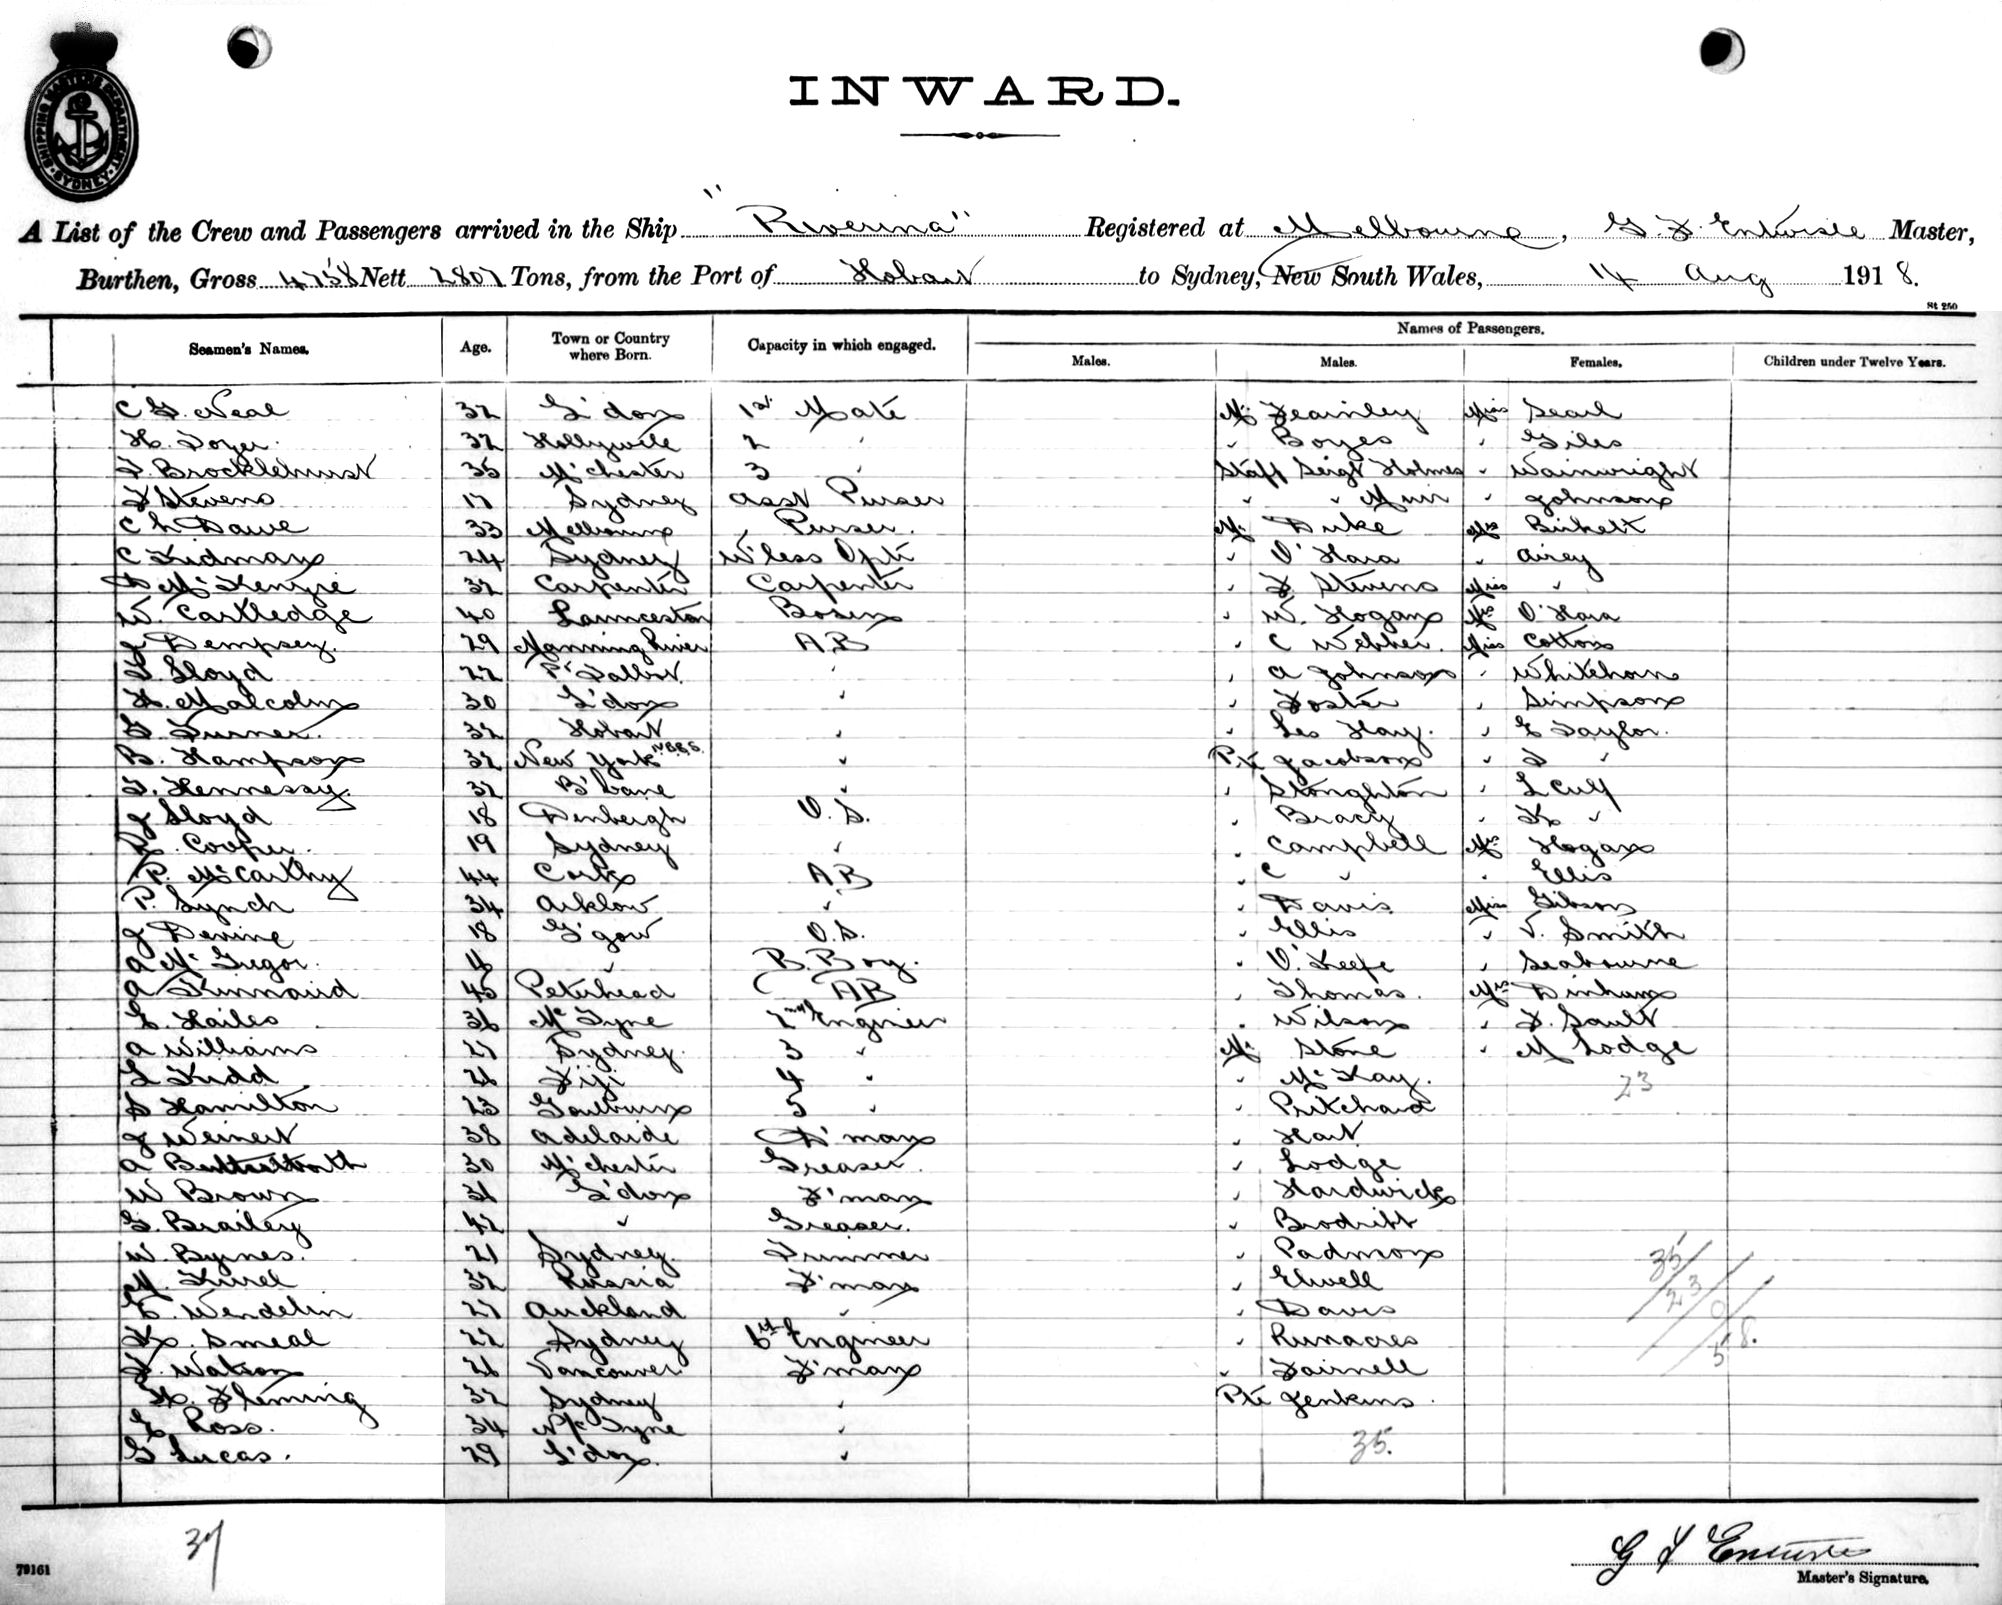 SHIPPING MASTERS DEPARTMENT SYDNEY
INWARD.
A List of the Crew and Passengers arrived in the Ship "Riverina" Registered at Melbourne, G. F. Entwisle Master,
Burthen, Gross 4758 Nett 2807 Tons, from the Port of Hobart to Sydney, New South Wales, 14 Aug 1918.
St 250
Seamen's Names. Age. Town or Country where Born. Capacity in which engaged. Names of Passengers.
Males. Males. Females. Children under Twelve Years.
C G. Neal 32 L'don 1st Mate Mr Fearnley Miss Searl
H. Dozer 32 2 " " Boyes " Giles
F. Brocklehurst 35 M'chester 3 " Staff Sergt Holmes " Wainwright
F Stevens 17 Sydney Asst Purser " " Muir " Johnson
C h Dawe 33 Melbourne Purser. Mr Duke Mrs Birkett
C Kidman 24 Sydney W'less Optr " O'Hara " Airey
D McKenzie 32 Carpenter Carpenter " F Stevens Miss "
W. Cartledge 40 Launceston Bosun " W. Hogan Mrs O'Hara
J Dempsey. 29 Manning River AB " C Webber. Miss Cotton
T. Lloyd 22 Pt Talbot " " A Johnson "
H. Malcolm 30 L'don " " Foster " Simpson
G. Turner. 32 Hobart " " Les Hay. " E Taylor.
B. Hampson 32 New York " Pte Jacobson " "
T. Hennessy. 32 B'bane " " Stoughton "
J Lloyd 18 Denbergh O. S. " Bracy " "
R. Cooper. 19 Sydney " " Campbell Mrs Hogan
P. McCarthy 44 Cork AB " C " " Ellis
P. Lynch 34 Arklow " " Davis Miss Gibson
J Devine 18 G'gow O.S. " Ellis " V. Smith
A McGregor. " B. Boy. " O'Keefe " Seabourne
A Kinnaird 45 Peterhead AB " Thomas. Mrs Dinham
E. Hailes 36 Nc Tyne 2nd Engineer " Wilson " F. Sault
A Williams 27 Sydney. 3 " Mr Stone " M Lodge
L Kidd 26 Fiji 4 " " McKay. 23
S Hamilton 23 Goulburn 5 " " Pritchard
J Weinert 38 Adelaide D'man " Hart
A Butterworth 30 M'chester Greaser. " Lodge
W Brown 31 L'don F'man " Hardwick
G. Brailey 42 " Greaser. " Brodribb
W. Byrnes. 21 Sydney. Trimmer " Padmon
M. Kurel 32 Russia F'man " Elwell
E. Wendelin 27 Auckland " " Davis
K. Smeal 22 Sydney 6th Engineer " Runacres
F. Watson 26 Vancouver F'man " Fairnell
H. Fleming 32 Sydney " Pte Jenkins.
E Ross. 34 N/c Tyne "
G Lucas. 29 L'don. " 35.
35/23/0/58.
37
G F Entwisle
Master's Signature.
79161